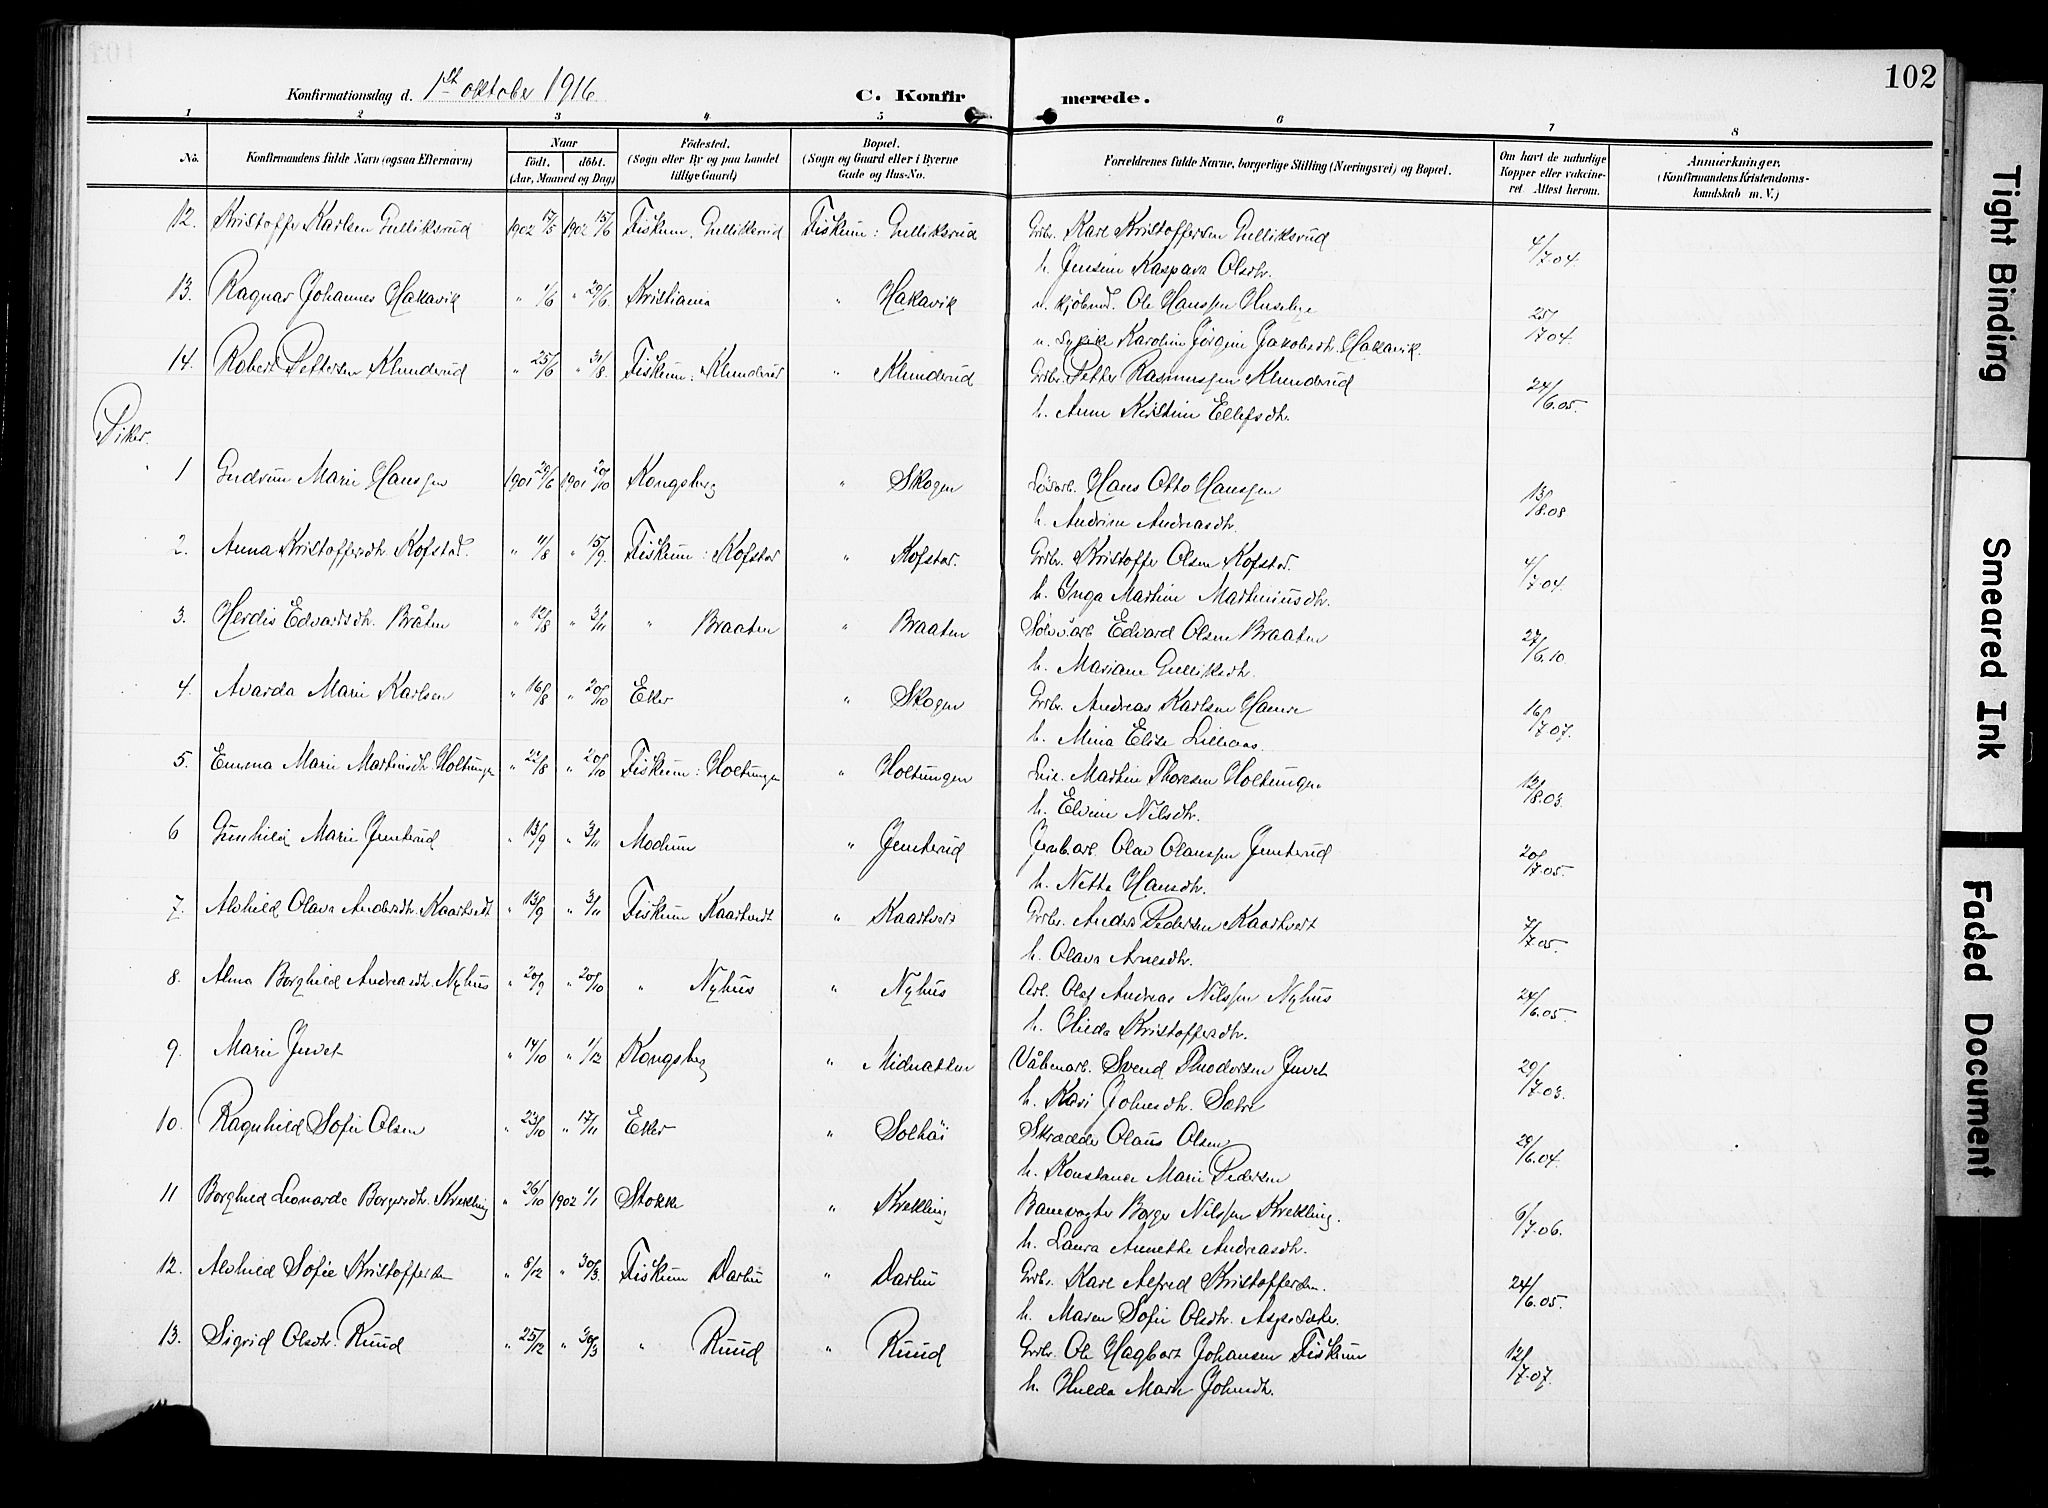 102
Konfirmationsdag d. 1st oktober 1916
C. Konfirmerede.
1 2 3 4 5 6 7 8
No. Konfirmandens fulde Navn (ogsaa Efternavn) Naar født. døbt. (Aar, Maaned og Dag) Födested. (Sogn eller By og paa Landet tillige Gaard) Bopæl. (Sogn og Gaard eller i Byerne Gade og Hus-No. Forældrenes fulde Navne, borgerlige Stilling (Næringsvei) og Bopæl. Om havt de naturlige Kopper eller vakcineret. Attest herom. Anmærkninger. (Konfirmandens Kristendomskundskab m. V.)
12. Kristoffer Karlsen Gulliksrud 1902 17/5 1902 15/6 Fiskum, Gulliksrud Fiskum: Gulliksrud Grdbr. Karl Kristoffersen Gulliksrud 4/7.04.
h. Jensine Kaspara Olsdtr.
13. Ragnar Johannes Hakavik " 1/6 " 29/6 Kristiania " Hakavik u. kjøbmd. Ole Hanssen Huseby 25/7.04.
u. Karoline Jørgine Jakobsdtr. Hakavik.
14. Robert Pettersen Klunderud " 25/6 " 31/8. Fiskum: Klunderud " Klunderud Grdbr. Petter Rasmussen Klunderud 24/6.05.
h. Anne Kristine Ellefsdtr.
Piker.
1 Gudrun Marie Hanssen 1901 29/6 1901 20/10 Kongsberg " Skogen Løsarb. Hans Otto Hanssen 13/8.08
h. Andrine Andreasdtr.
2. Anna Kristoffersdtr. Kofstad. " 11/8 " 15/9. Fiskum: Kofstad " Kofstad. Grdbr. Kristoffer Olsen Kofstad. 4/7.04.
h. Inga Martine Martiniusdtr.
3. Herdis Edvardsdtr. Bråten " 12/8 " 3/11 " Braaten " Braaten Sølvv.arb. Edvard Olsen Braaten 27/6.10.
h. Mariane Gulliksdtr.
4. Avarda Marie Karlsen " 16/8 " 20/10 Eker " Skogen Grdbr. Andreas Karlsen 16/7.07.
h. Mina Elise Lilleaas.
5. Emma Marie Martinsdtr. Holtungen " 22/8 " 20/10 Fiskum: Holtungen " Holtungen Lei. Martin Thoresen Holtungen 12/8.03.
h. Elvine Nilsdtr.
6 Gunhild Marie Jenterud " 13/9 " 3/11 Modum " Jenterud Jernb.arb. Olav Olaussen Jenterud 20/7.05.
h. Netta Hansdtr.
7. Alvhild Olava Andersdtr. Kaartvedt " 13/9 " 3/11 Fiskum Kaartvedt " Kaartvedt Grdbr. Anders Pedersen Kaartvedt 7/7.05.
h. Olava Arnesdtr.
8. Alma Borghild Andreasdtr. Nyhus " 20/9 " 20/10 " Nyhus " Nyhus Arb. Olaf Andreas Nilssen Nyhus 24/6.05.
h. Hilda Kristoffersdtr.
9. Marie Juvet " 14/10 " 1/12 Kongsberg " Midnatten Våbenarb. Svend Theodorsen Juvet 29/7.03.
h. Kari Johnsdtr. Sætre
10. Ragnhild Sofie Olsen " 23/10 " 17/11 Eker " Solhöi Skrædder Olaus Olsen 29/6.04.
h. Konstance Marie Pedersen
11 Borghild Leonarda Borgersdtr. Krekling " 26/10 1902 1/1 Stokke " Krekling Banevogter Borger Nilssen Krekling. 6/7.06.
h. Laura Annette Andreasdtr.
12. Alvhild Sofie Kristoffersen " 8/12 " 30/3. Fiskum Darbu " Darbu Grdbr. Karl Alfred Kristoffersen. 24/6.05.
h. Maren Sofie Olsdtr.
13. Sigrid Olsdtr. Ruud " 25/12 " 30/3 " Ruud " Ruud Grdbr. Ole Hagbart Johansen Fiskum 12/7.07.
h. Hulda Marie Johnsdtr.
Tight Binding
Smeared Ink
Faded Document